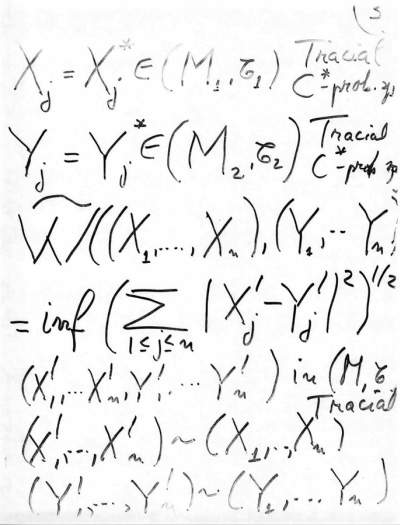 (5
X_j = X_j^* ∈ (M_1, τ_1) Tracial C*-prob. sp
Y_j = Y_j^* ∈ (M_2, τ_2) Tracial C*-prob sp
W̃((X_1, ..., X_n), (Y_1, .. Y_n
= inf ( Σ_{1≤j≤n} |X'_j - Y'_j|^2 )^{1/2}
(X'_1, ... X'_n, Y'_1, ... Y'_n) in (M, τ
Tracial
(X'_1, ..., X'_n) ~ (X_1, .., X_n)
(Y'_1, ..., Y'_n) ~ (Y_1, ... Y_n)